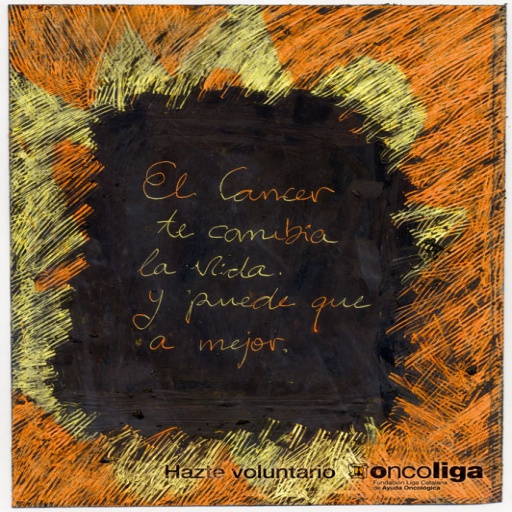 El Cáncer
te cambia
la vida.
y puede que
a mejor.
Hazte voluntario oncoliga
Fundación Liga Catalana
de Ayuda Oncológica